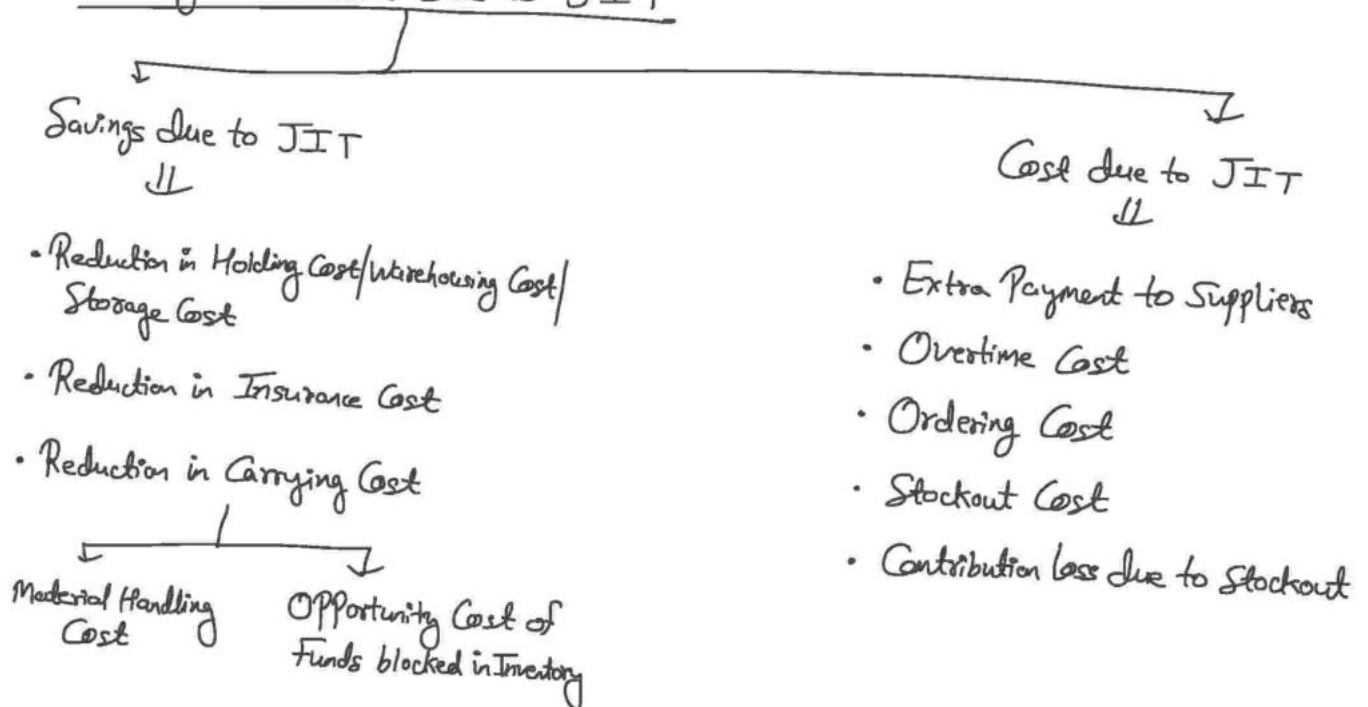 due to JIT
Savings due to JIT
• Reduction in Holding Cost/Warehousing Cost/
Storage Cost
• Reduction in Insurance Cost
• Reduction in Carrying Cost
Material Handling
Cost
Opportunity Cost of
Funds blocked in Inventory
Cost due to JIT
• Extra Payment to Suppliers
• Overtime Cost
• Ordering Cost
• Stockout Cost
• Contribution loss due to Stockout